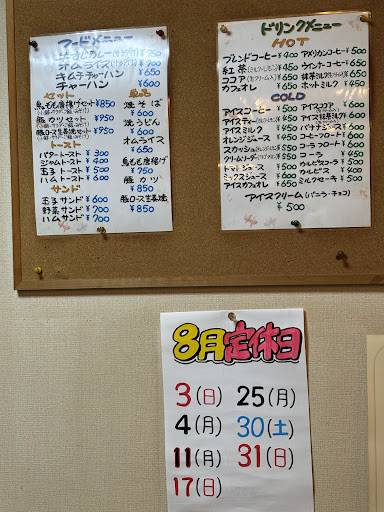 フードメニュー
オムライス
キムチチャーハン 650
チャーハン 600
セット
鳥もも唐揚げセット ¥850
豚カツセット ¥950
豚ロース生姜焼セット ¥950
トースト
バタートースト ¥300
ジャムトースト ¥400
玉子トースト ¥500
ハムトースト ¥600
サンド
玉子サンド ¥600
野菜サンド ¥700
ハムサンド ¥700
単品
焼そば ¥650
焼うどん ¥650
オムライス ¥650
鳥もも唐揚げ ¥750
豚カツ ¥850
豚ロース生姜焼 ¥850
ドリンクメニュー
HOT
ブレンドコーヒー ¥400
紅茶(ミルク・レモン) ¥450
ココア ¥650
カフェオレ ¥650
アメリカンコーヒー ¥500
ウインナーコーヒー ¥650
抹茶ミルク ¥650
ホットミルク ¥450
COLD
アイスコーヒー
アイスティー
アイスミルク
オレンジジュース
スカッシュ
クリームソーダ
トマトジュース
ミックスジュース
アイスカフェオレ
アイスココア
アイス抹茶ミルク
バナナジュース
コーヒーフロート
コーラフロート
コーラ
カルピスコーラ
カルピス
ミルクセーキ
アイスクリーム(バニラ・チョコ)
¥500
8月定休日
3(日) 25(月)
4(月) 30(土)
11(月) 31(日)
17(日)